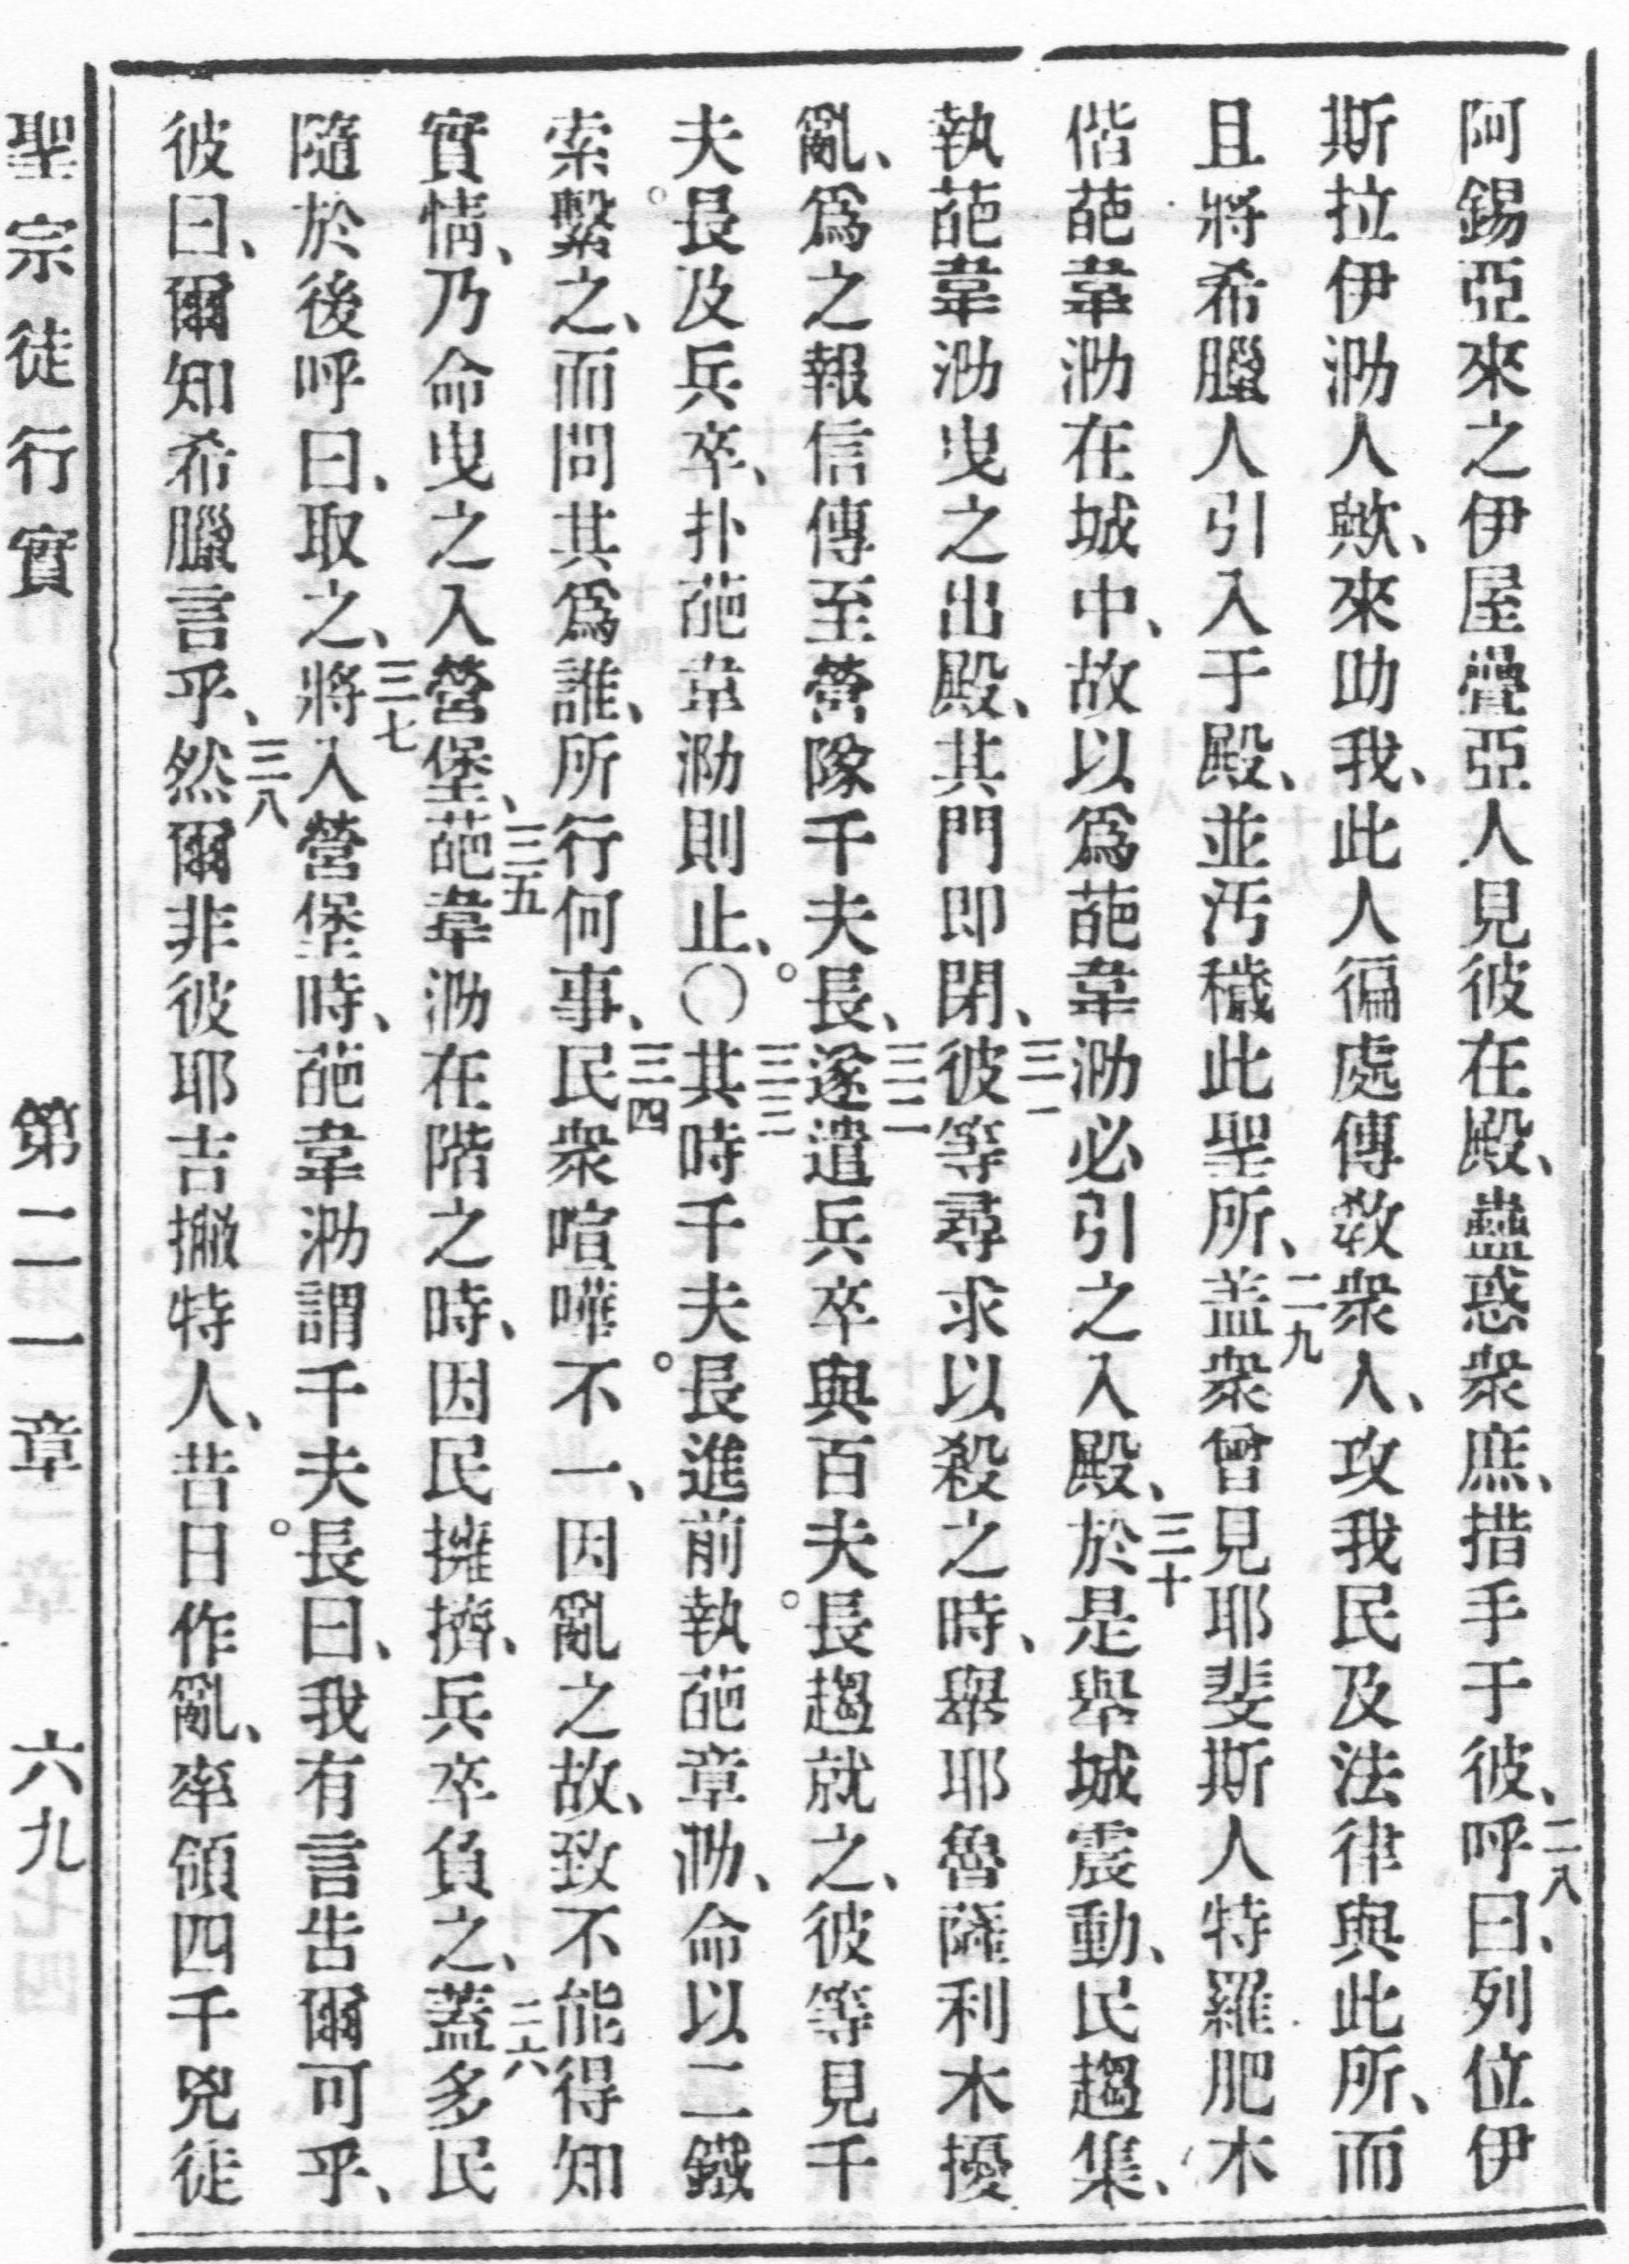 阿錫亞來之伊屋疊亞人見彼在殿、蠱惑衆庶、措手于彼、二八呼曰、列位伊
斯拉伊泐人歟、來助我、此人徧處傳敎衆人、攻我民及法律與此所、而
且將希臘人引入于殿、並汚穢此聖所、二九盖衆曾見耶斐斯人特羅肥木
偕葩韋泐在城中、故以爲葩韋泐必引之入殿、三十於是舉城震動、民趨集、
執葩韋泐曳之出殿、其門即閉、三一彼等尋求以殺之時、舉耶魯薩利木擾
亂、爲之報信傳至營隊千夫長、三二遂遣兵卒與百夫長趨就之、彼等見千
夫長及兵卒、扑葩韋泐則止、〇三三其時千夫長進前執葩韋泐、命以二鐵
索繫之、而問其爲誰、所行何事、三四民衆喧嘩不一、因亂之故、致不能得知
實情、乃命曳之入營堡、三五葩韋泐在階之時、因民擁擠、兵卒負之、三六蓋多民
隨於後呼曰、取之、三七將入營堡時、葩韋泐謂千夫長曰、我有言告爾可乎、
彼曰、爾知希臘言乎、三八然爾非彼耶吉撇特人、昔日作亂、率領四千兇徒
聖宗徒行實 第二一章 六九